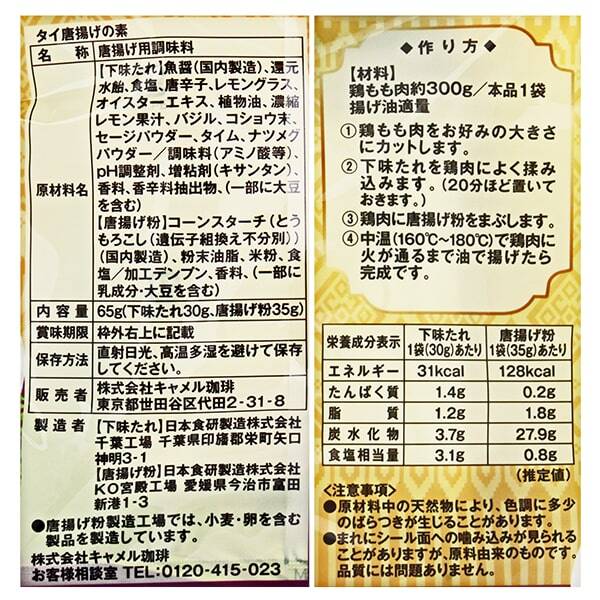 タイ唐揚げの素
名称 唐揚げ用調味料
原材料名
【下味たれ】魚醤(国内製造)、還元
水飴、食塩、唐辛子、レモングラス、
オイスターエキス、植物油、濃縮
レモン果汁、バジル、コショウ末、
セージパウダー、タイム、ナツメグ
パウダー/調味料(アミノ酸等)、
pH調整剤、増粘剤(キサンタン)、
香料、香辛料抽出物、(一部に大豆
を含む)
【唐揚げ粉】コーンスターチ(とう
もろこし(遺伝子組換え不分別))
(国内製造)、粉末油脂、米粉、食
塩/加工デンプン、香料、(一部に
乳成分・大豆を含む)
内容量 65g(下味たれ30g、唐揚げ粉35g)
賞味期限 枠外右上に記載
保存方法 直射日光、高温多湿を避けて保存
してください。
販売者 株式会社キャメル珈琲
東京都世田谷区代田2-31-8
製造者 【下味たれ】日本食研製造株式会社
千葉工場 千葉県印旛郡栄町矢口
神明3-1
【唐揚げ粉】日本食研製造株式会社
KO宮殿工場 愛媛県今治市富田
新港1-3
●唐揚げ粉製造工場では、小麦・卵を含む
製品を製造しています。
株式会社キャメル珈琲
お客様相談室 TEL:0120-415-023
◆作り方◆
【材料】
鶏もも肉約300g/本品1袋
揚げ油適量
①鶏もも肉をお好みの大きさ
にカットします。
②下味たれを鶏肉によく揉み
込みます。(20分ほど置いて
おきます。)
③鶏肉に唐揚げ粉をまぶします。
④中温(160℃~180℃)で鶏肉に
火が通るまで油で揚げたら
完成です。
栄養成分表示 下味たれ1袋(30g)あたり 唐揚げ粉1袋(35g)あたり
エネルギー 31kcal 128kcal
たんぱく質 1.4g 0.2g
脂質 1.2g 1.8g
炭水化物 3.7g 27.9g
食塩相当量 3.1g 0.8g
(推定値)
<注意事項>
●原材料中の天然物により、色調に多少
のばらつきが生じることがあります。
●まれにシール面への噛み込みが見られる
ことがありますが、原料由来のものです。
品質には問題ありません。